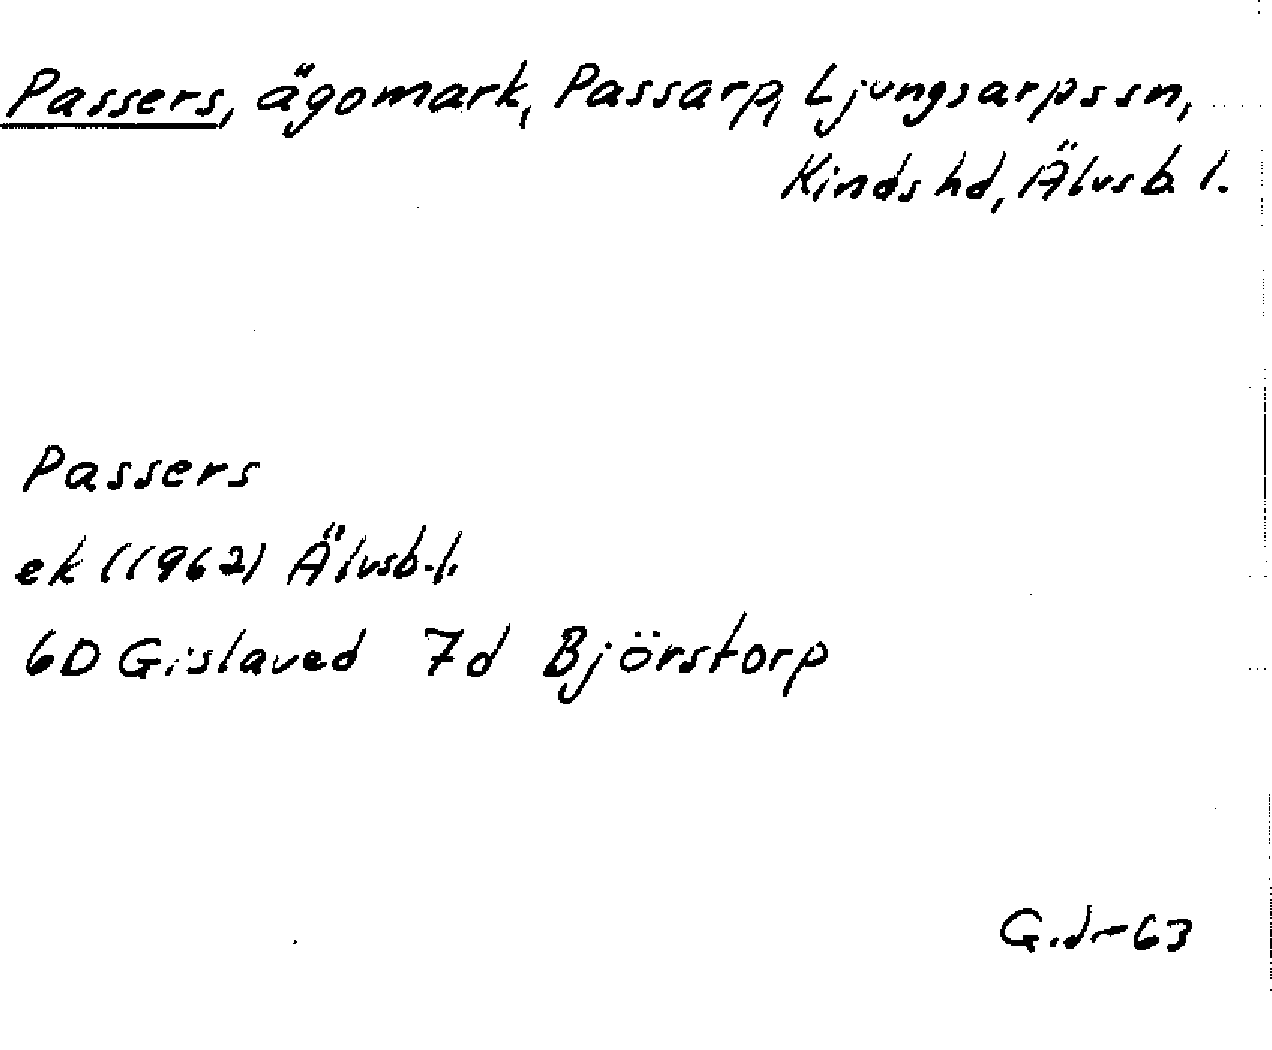 Passers, ägomark, Passarp, Ljungsarps sn,
Kinds hd, Älvsb. l.
Passers
ek (1962) Älvsb. l.
6D Gislaved 7d Björstorp
G. J-63